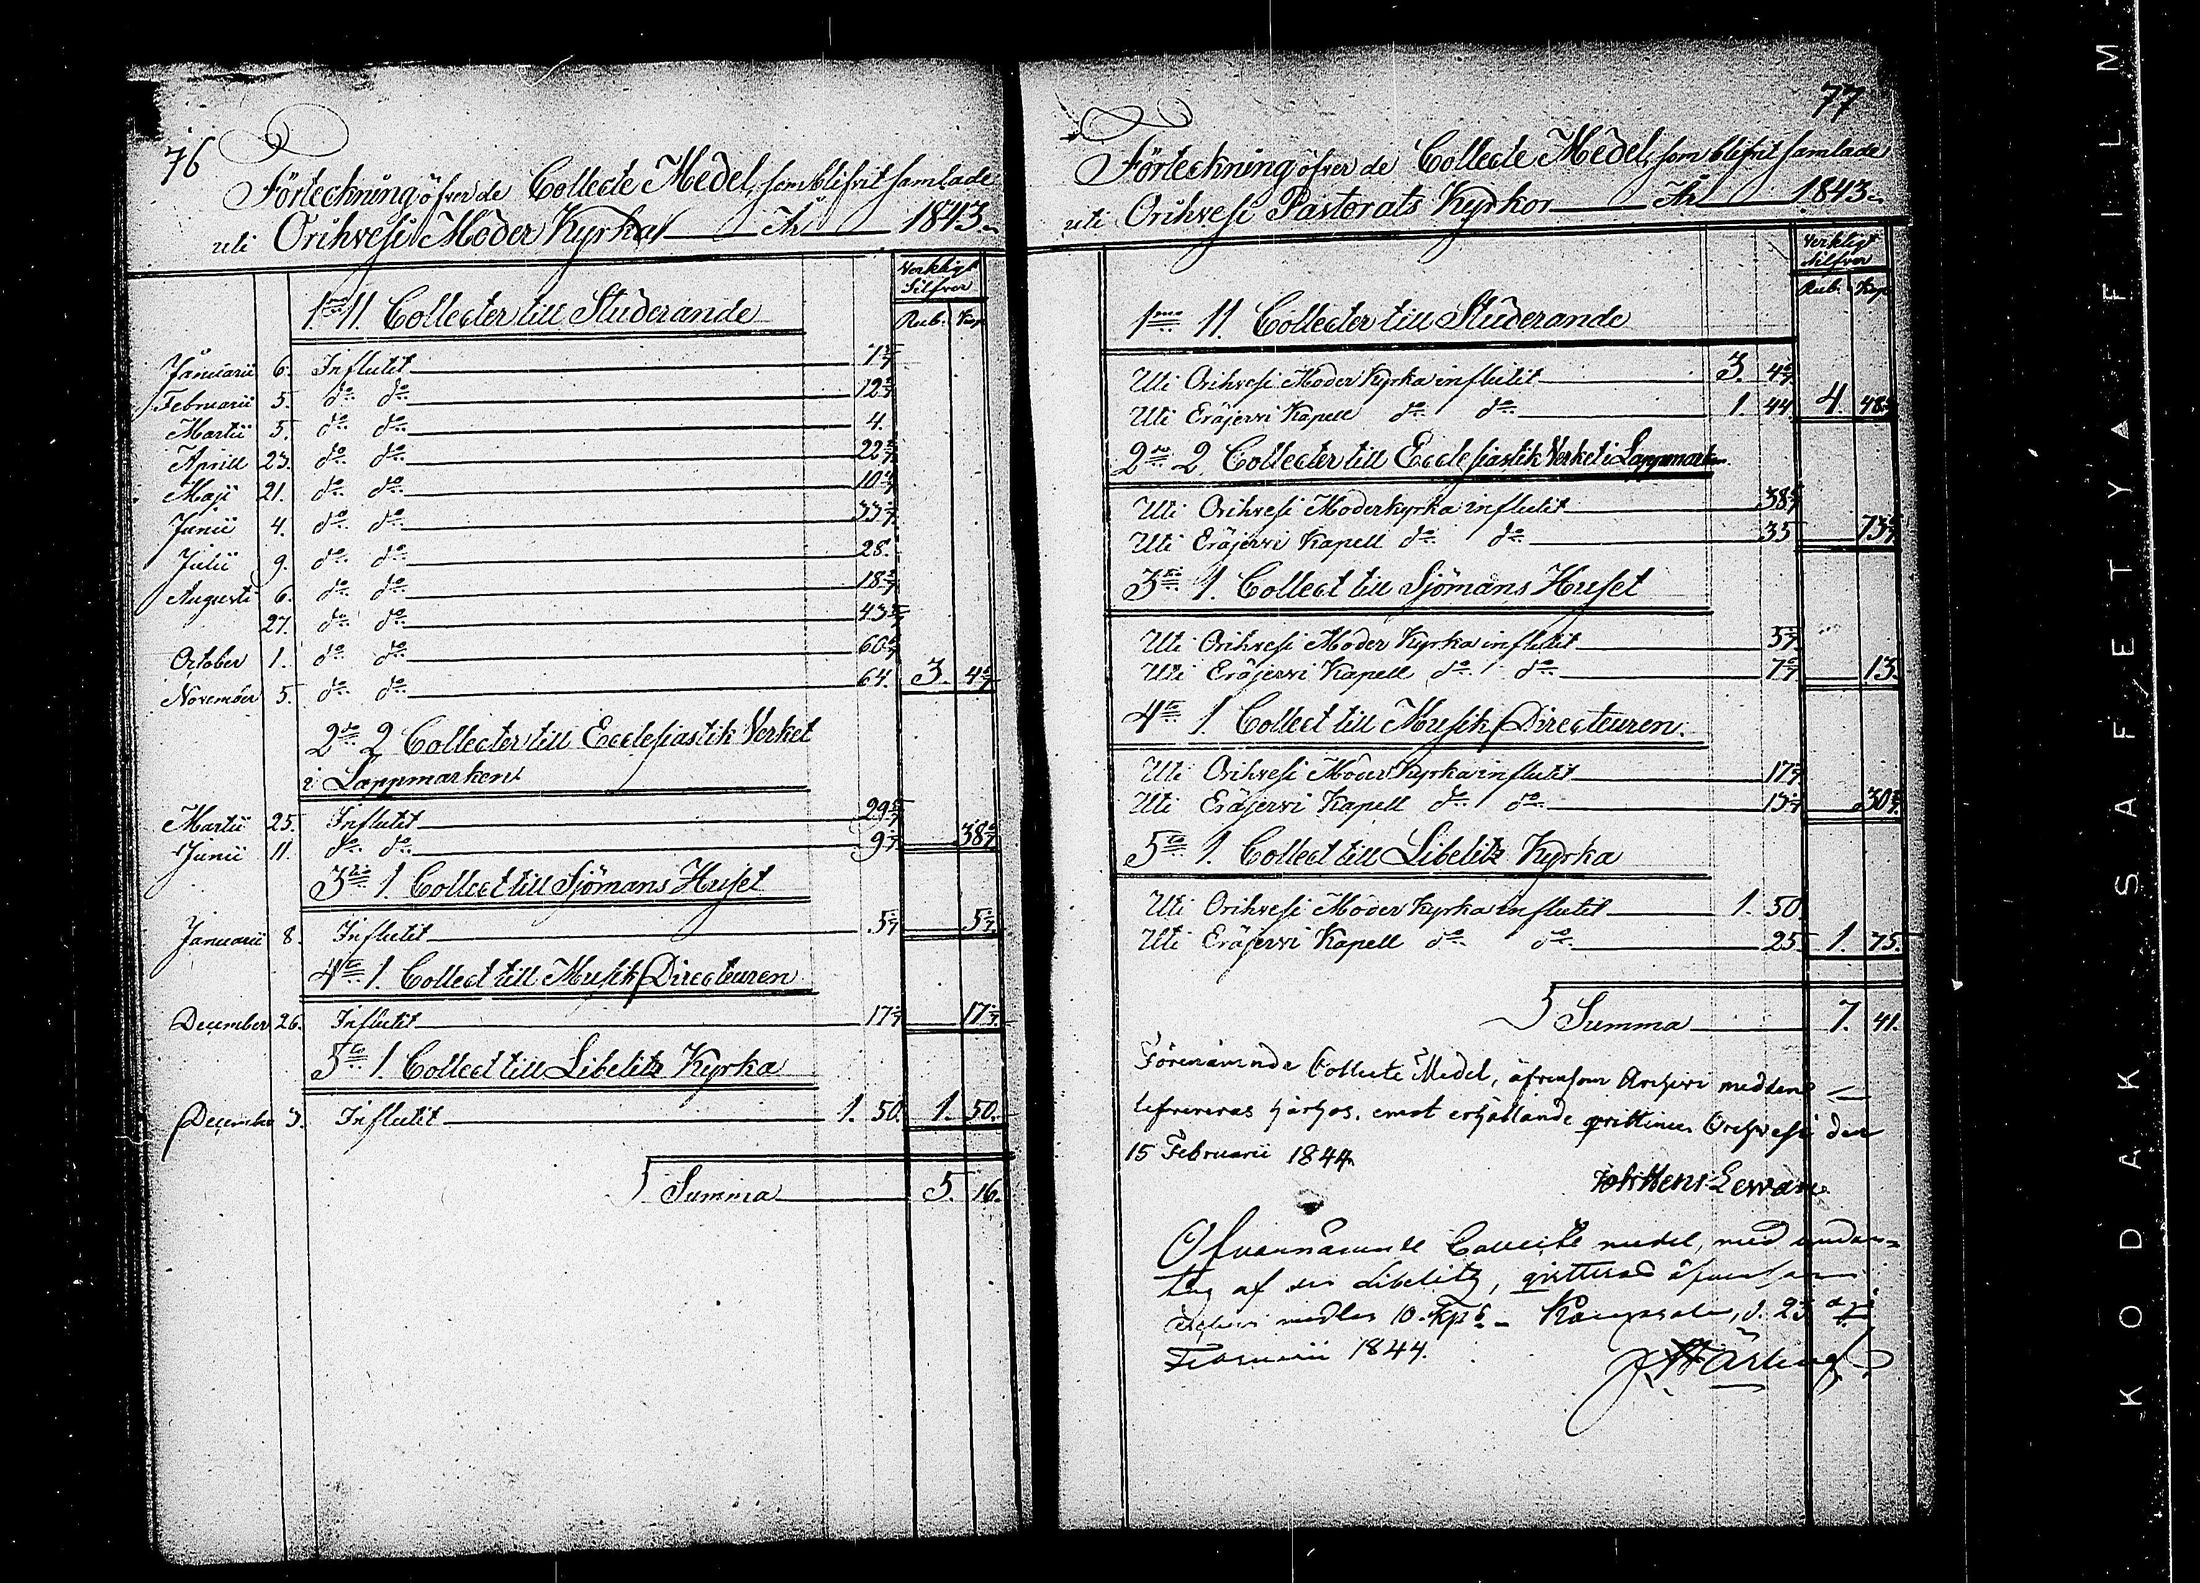 76
Förteckning öfver de Collecte Medel, som blifvit samlade
uti Orihvesi Moder Kyrka År 1843.
Verkligt
Silfver
Rub. Kop
1mo 11. Collecter till Studerande
Januarii 6. Influtit 1 5/7
Februarii 5. do do 12
Martii 5. do do 4.
Aprill 23. do do 22
Maji 21. do do 10
Junii 4. do do
Julii 9. do do 28.
Augusti 6. do do 18
27. do do 43
October 1. do do 60
November 5. do do 64. 3. 4
2do 2 Collecter till Ecclesiastik Verket
i Lappmarken
Martii 25. Influtit 29
Junii 11. do do 9 38
3tio 1. Collect till Sjömans Huset
Januarii 8. Influtit 5 5
4to 1. Collect till Musik Directeuren
December 26. Influtit 17 17
5to 1. Collect till Libelitz Kyrka
December 3. Influtit 1. 50. 1. 50.
Summa 5. 16.
77
Förteckning öfver de Collecte Medel, som blifvit samlade
uti Orihvesi Pastorats Kyrkor År 1843.
Verkligt
Silfver
Rub. Kop
1mo 11. Collecter till Studerande
Uti Orihvesi Moder Kyrka influtit 3. 4
Uti Eräjervi Kapell do do 1. 44 4. 48
2do 2 Collecter till Ecclesiastik Verket i Lappmark
Uti Orihvesi Moderkyrka influtit 38
Uti Eräjervi Kapell do do 35 73
3tio 1. Collect till Sjömans Huset
Uti Orihvesi Moder Kyrka influtit 5
Uti Eräjervi Kapell do do 7 13
4to 1 Collect till Musik Directeuren.
Uti Orihvesi Moder Kyrka influtit 17
Uti Eräjervi Kapell do do 13 30
5to 1. Collect till Libelitz Kyrka
Uti Orihvesi Moder Kyrka influtit 1. 50
Uti Eräjervi Kapell do do 25 1. 75.
Summa 7. 41.
Förenämnda Collecte Medel, äfvensom Archivi medlen
lefvereras härhos, emot erhållande qvittence. Orihvesi den
15 Februarii 1844
Joh Henr Lewan
Ofvannämnde Collecte medel, med undan-
tag af den Libelitz, qvitteras äfvensom
Archivi medlen 10. Kop S. Kangasala, d. 23
Februarii 1844.
KODAK SAFETY FILM